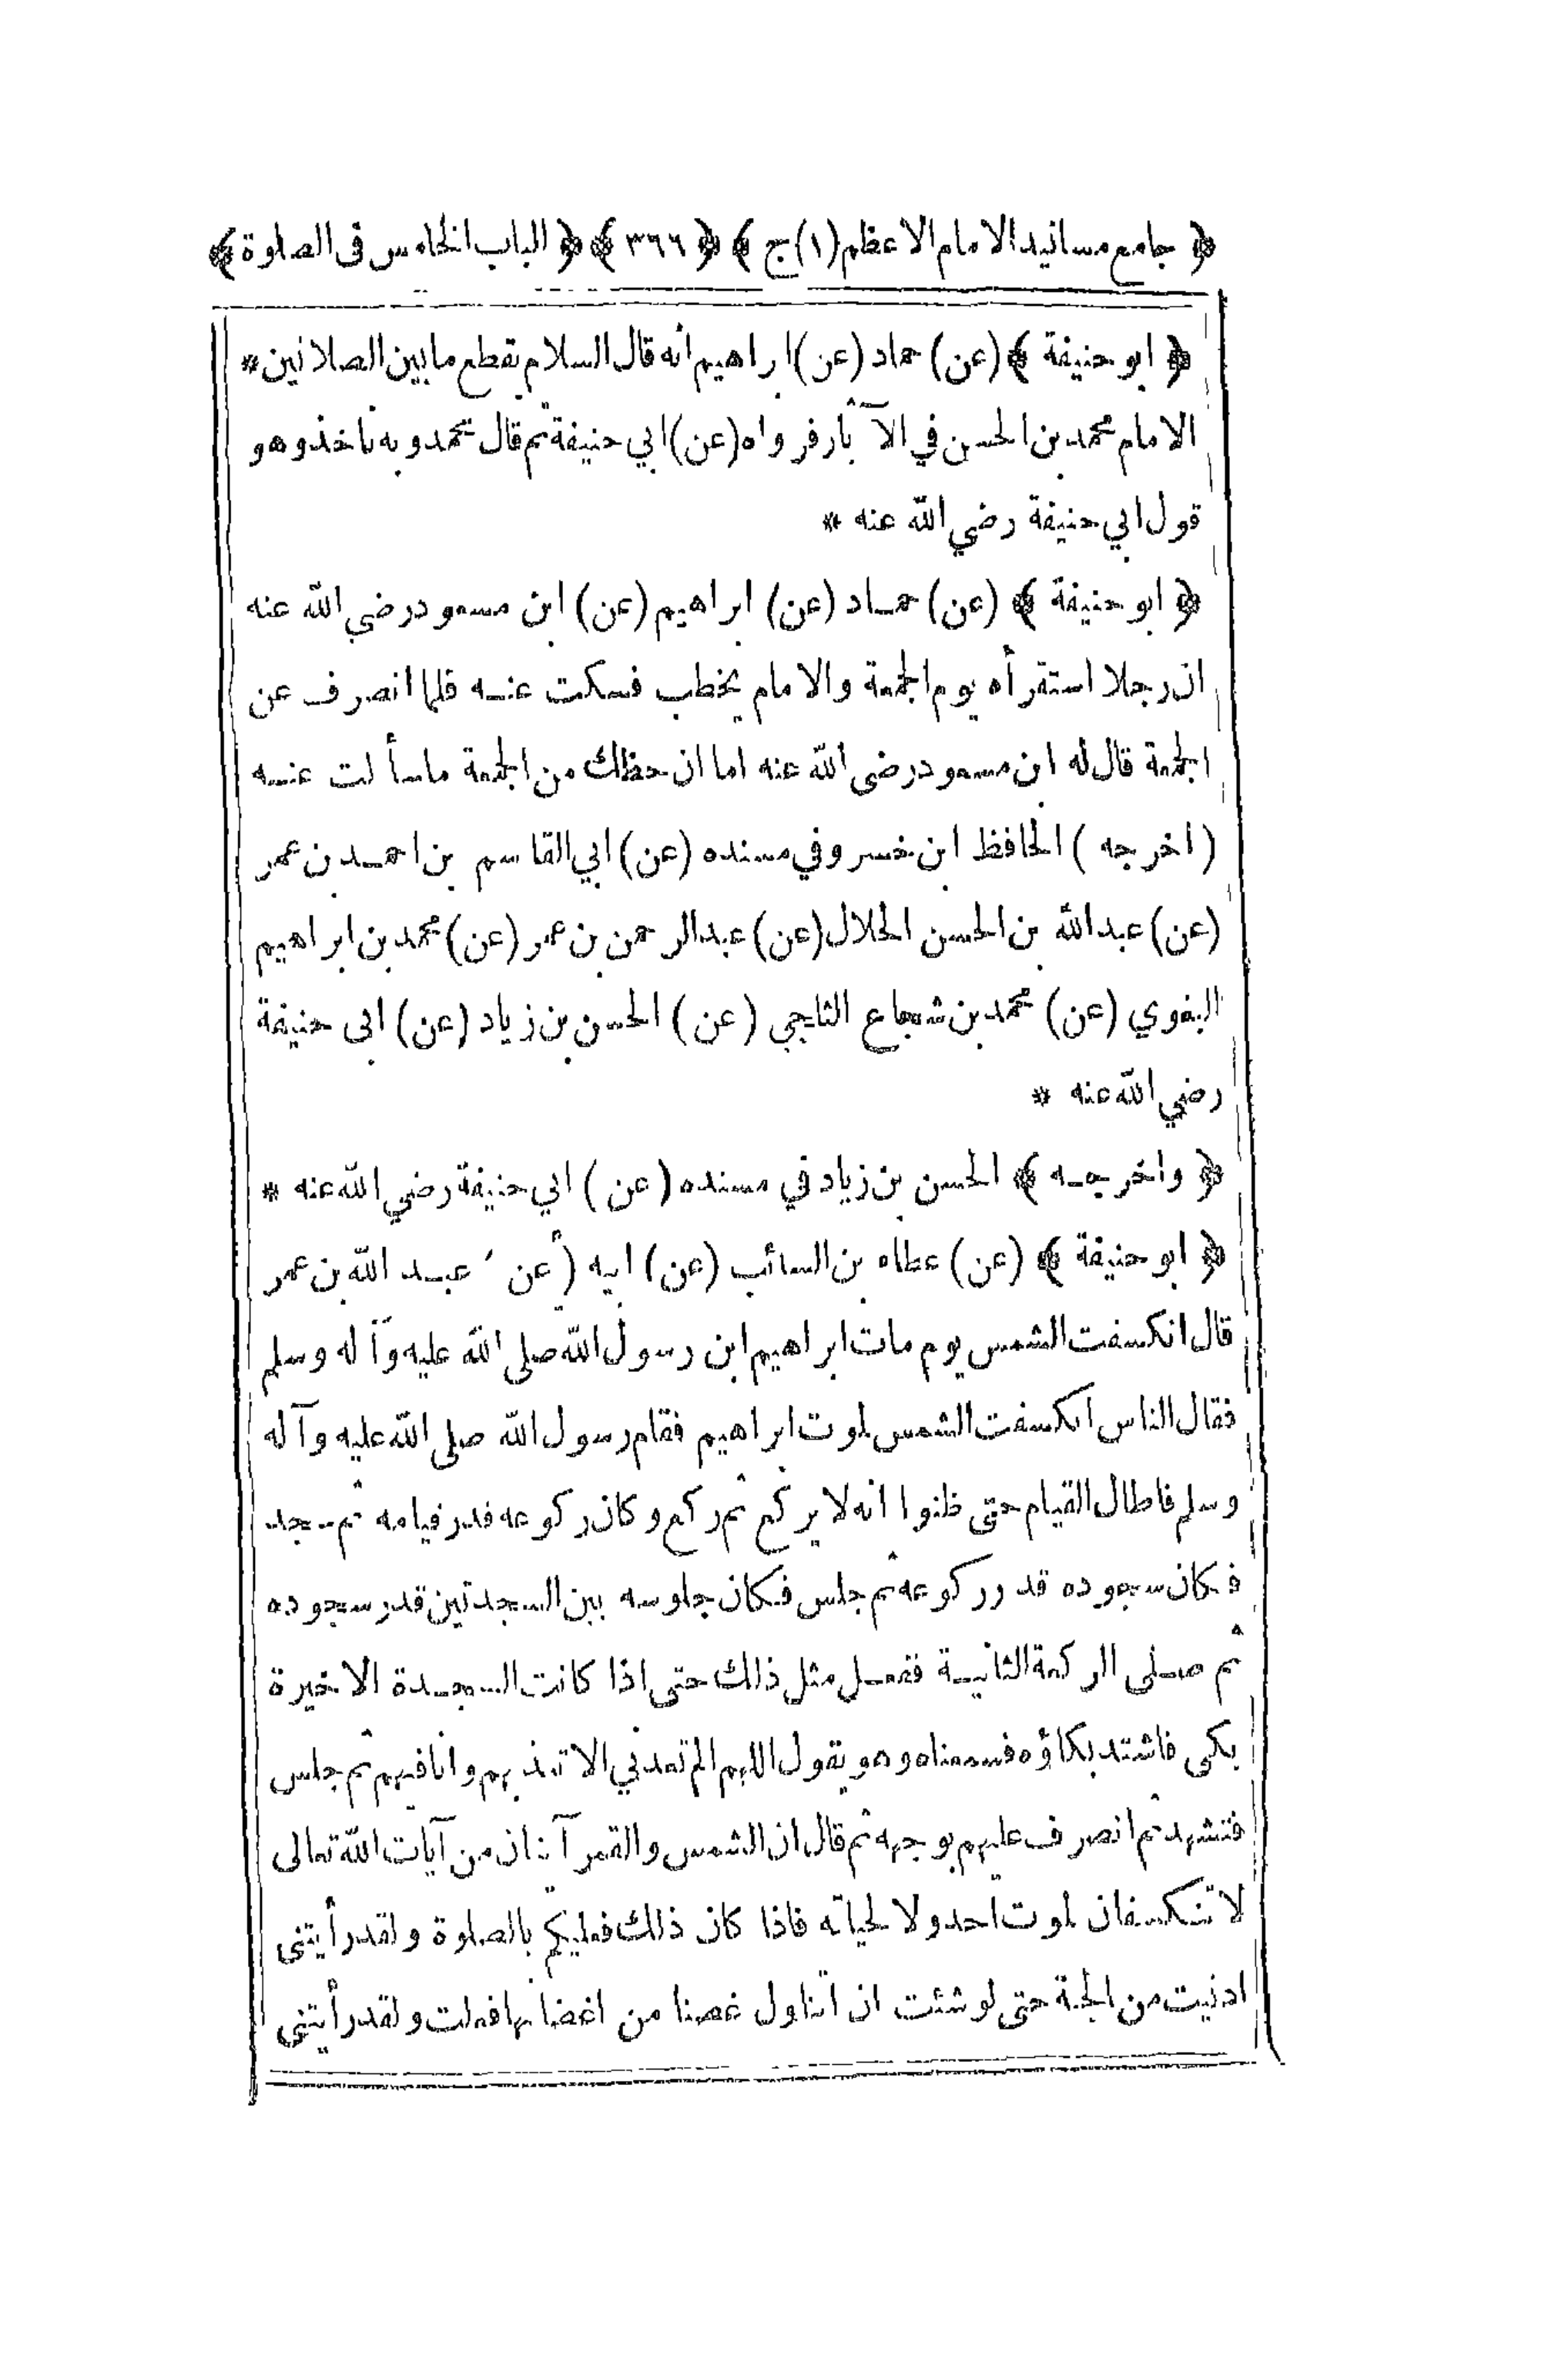 ﴿ جامع مسانيد الامام الاعظم (١) ج ﴾ ﴿ ٣٦٦ ﴾ ﴿ الباب الخامس فى الصلوة ﴾
﴿ ابو حنيفة ﴾ (عن) حماد (عن) ابراهيم انه قال السلام يقطع ما بين الصلاتين *
الامام محمد بن الحسن في الآثار فرواه (عن) ابي حنيفة ثم قال محمد وبه ناخذ وهو
قول ابي حنيفة رضي الله عنه *
﴿ ابو حنيفة ﴾ (عن) حماد (عن) ابراهيم (عن) ابن مسعود رضي الله عنه
ان رجلا استقرأه يوم الجمعة والامام يخطب فسكت عنه فلما انصرف عن
الجمعة قال له ابن مسعود رضى الله عنه اما ان حظك من الجمعة ما سألت عنه
(اخرجه) الحافظ ابن خسرو في مسنده (عن) ابي القاسم بن احمد بن عمر
(عن) عبد الله بن الحسن الخلال (عن) عبد الرحمن بن عمر (عن) محمد بن ابراهيم
البغوي (عن) محمد بن شجاع الثلجي (عن) الحسن بن زياد (عن) ابى حنيفة
رضي الله عنه *
﴿ واخرجه ﴾ الحسن بن زياد في مسنده (عن) ابي حنيفة رضي الله عنه *
﴿ ابو حنيفة ﴾ (عن) عطاء بن السائب (عن) ابيه (عن) عبد الله بن عمر
قال انكسفت الشمس يوم مات ابراهيم ابن رسول الله صلى الله عليه وآله وسلم
فقال الناس انكسفت الشمس لموت ابراهيم فقام رسول الله صلى الله عليه وآله
وسلم فاطال القيام حتى ظنوا انه لا يركع ثم ركع وكان ركوعه قدر قيامه ثم سجد
فكان سجوده قدر ركوعه ثم جلس فكان جلوسه بين السجدتين قدر سجوده
ثم صلى الركعة الثانية ففعل مثل ذلك حتى اذا كانت السجدة الاخيرة
بكى فاشتد بكاؤه فسمعناه وهو يقول اللهم الم تعدني الا تعذبهم وانا فيهم ثم جلس
فتشهد ثم انصرف عليهم بوجهه ثم قال ان الشمس والقمر آيتان من آيات الله تعالى
لا تنكسفان لموت احد ولا لحياته فاذا كان ذلك فعليكم بالصلوة ولقد رأيتنى
ادنيت من الجنة حتى لو شئت ان اتناول غصنا من اغصانها فعلت ولقد رأيتنى